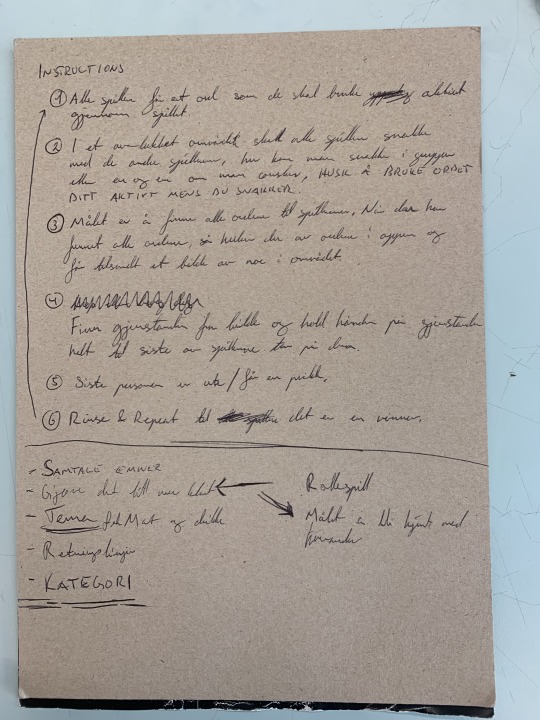 INSTRUCTIONS
① Alle spillere får et ord som de skal bruke aktivt
gjennom spillet.
② I et avlukket område skal alle spillere snakke
med de andre spillerne, her kan man snakke i grupper
eller en og en om man ønsker, HUSK Å BRUKE ORDET
DITT AKTIVT MENS DU SNAKKER.
③ Målet er å finne alle ordene til spillerne, Når du har
funnet alle ordene, så du av ordene i appen og
får tilsendt et bilde av noe i området.
④
Finn gjenstanden fra bilde og hold hånden på gjenstanden
helt til siste av spillerne tar på den.
⑤ Siste personen er ute / får en prikk.
⑥ Rinse & Repeat til det er en vinner.
- SAMTALE EMNER
- Gjøre det litt mer klart
- Tema Mat og drikke
- Retningslinjer
- KATEGORI
Rollespill
Målet å bli kjent med
hverandre